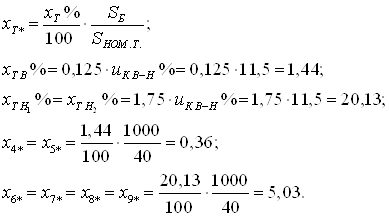 x_T* = x_T% / 100 · S_Б / S_НОМ.Т. ;
x_TB% = 0,125 · u_KB−H% = 0,125 · 11,5 = 1,44;
x_TH₁% = x_TH₂% = 1,75 · u_KB−H% = 1,75 · 11,5 = 20,13;
x_4* = x_5* = 1,44 / 100 · 1000 / 40 = 0,36;
x_6* = x_7* = x_8* = x_9* = 20,13 / 100 · 1000 / 40 = 5,03.